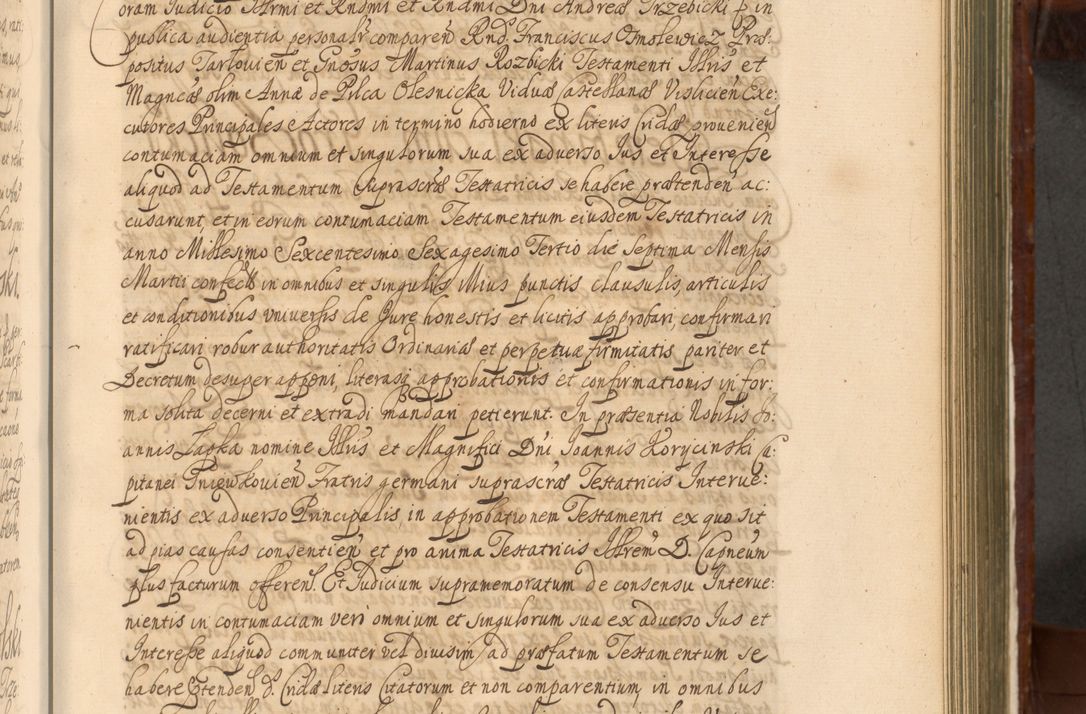 oram Iudicio Illrmi et Rndmi et Rndmi Dni Andreæ Trzebicki
publica audientia personalr comparen Rnd. Franciscus Omolewicz Præ:
positus Tarlovien et Gnosus Martinus Rozbicki Testamenti Illris et
Magncæ olim Annæ de Pilca Olesnicka Viduæ Castellanæ Vislicien Exe:
cutores Principales Actores in termino hodierno ex literis Cridæ provenien
contumaciam omnium et singulorum sua ex adverso Ius et Interesse
aliquod ad Testamentum suprascræ Testatricis se habere prætenden ac:
cusarunt, et in eorum contumaciam Testamentum eiusdem Testatricis in
anno Millesimo Sexcentesimo Sexagesimo Tertio die Septima Mensis
Martii confectu in omnibus et singulis illius punctis clausulis, articulis
et conditionibus universis de Jure honestis et licitis approbari, confirmari
ratificari robur authoritatis Ordinariæ et perpetuæ firmitatis pariter et
Decretum desuper apponi, literasq approbationis et confirmationis in for:
ma solita decerni et extradi mandari petierunt. In præsentia Nobilis Jo:
annis Zapka nomine Illris et Magnifici Dni Ioannis Korycinski Ca:
pitanei Pniewkovien Fratris germani suprascræ Testatricis Interve:
nientis ex adverso Principalis, in approbationem Testamenti ex quo sit
ad pias causas consentien et pro anima Testatricis Illren D. Capneum
plus facturum offeren. Et Iudicium supramemoratum de consensu Interve:
nientis in contumaciam vero omnium et singulorum sua ex adverso Ius et
Interesse aliquod communiter vel divisim ad præfatum Testamentum se
habere prtenden d. Cridæ literis Citatorum et non comparentium, in omnibus